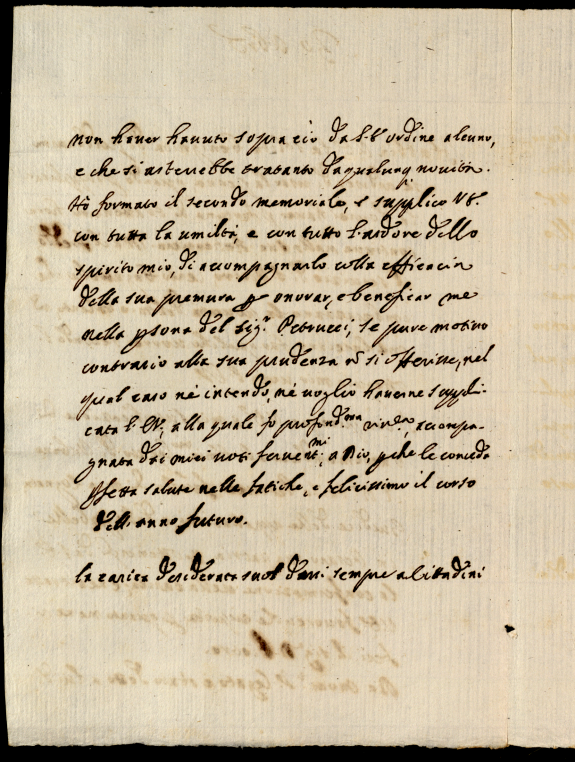 non haver havuto sopra ciò da S.E. ordine alcuno,
e che si asterrebbe tratanto da qualunq novità.
Hò formato il secondo memoriale, e supplico V.E.
con tutta la umiltà, e con tutto l'ardore dello
spirito mio, di accompagnarlo colla efficacia
della sua premura p onorar, e beneficar me
nella psona del Sig.r Petrucci, se pure motivo
contrario alla sua prudenza nō si offerisse, nel
qual caso nè intendo, nè voglio haverne suppli-
cata l'E.V., alla quale fo profond.ma river.a, accompa-
gnata dai miei voti ferventmi a Dio, pche le conceda
pfetta salute nelle fatiche, e felicissimo il corso
dell'anno futuro.
la carica desiderata suol darsi sempre a Cittadini